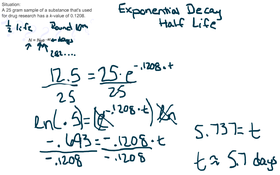 Situation:
A 25 gram sample of a substance that's used
for drug research has a k-value of 0.1208.
Exponential Decay
Half Life
1/2 life
Round 10th
days
12.5 = 25·e^-.1208·t
25 25
ln(.5) = (e^-.1208·t) ln
-.693 = -.1208·t
-.1208 -.1208
5.737 = t
t ≈ 5.7 days